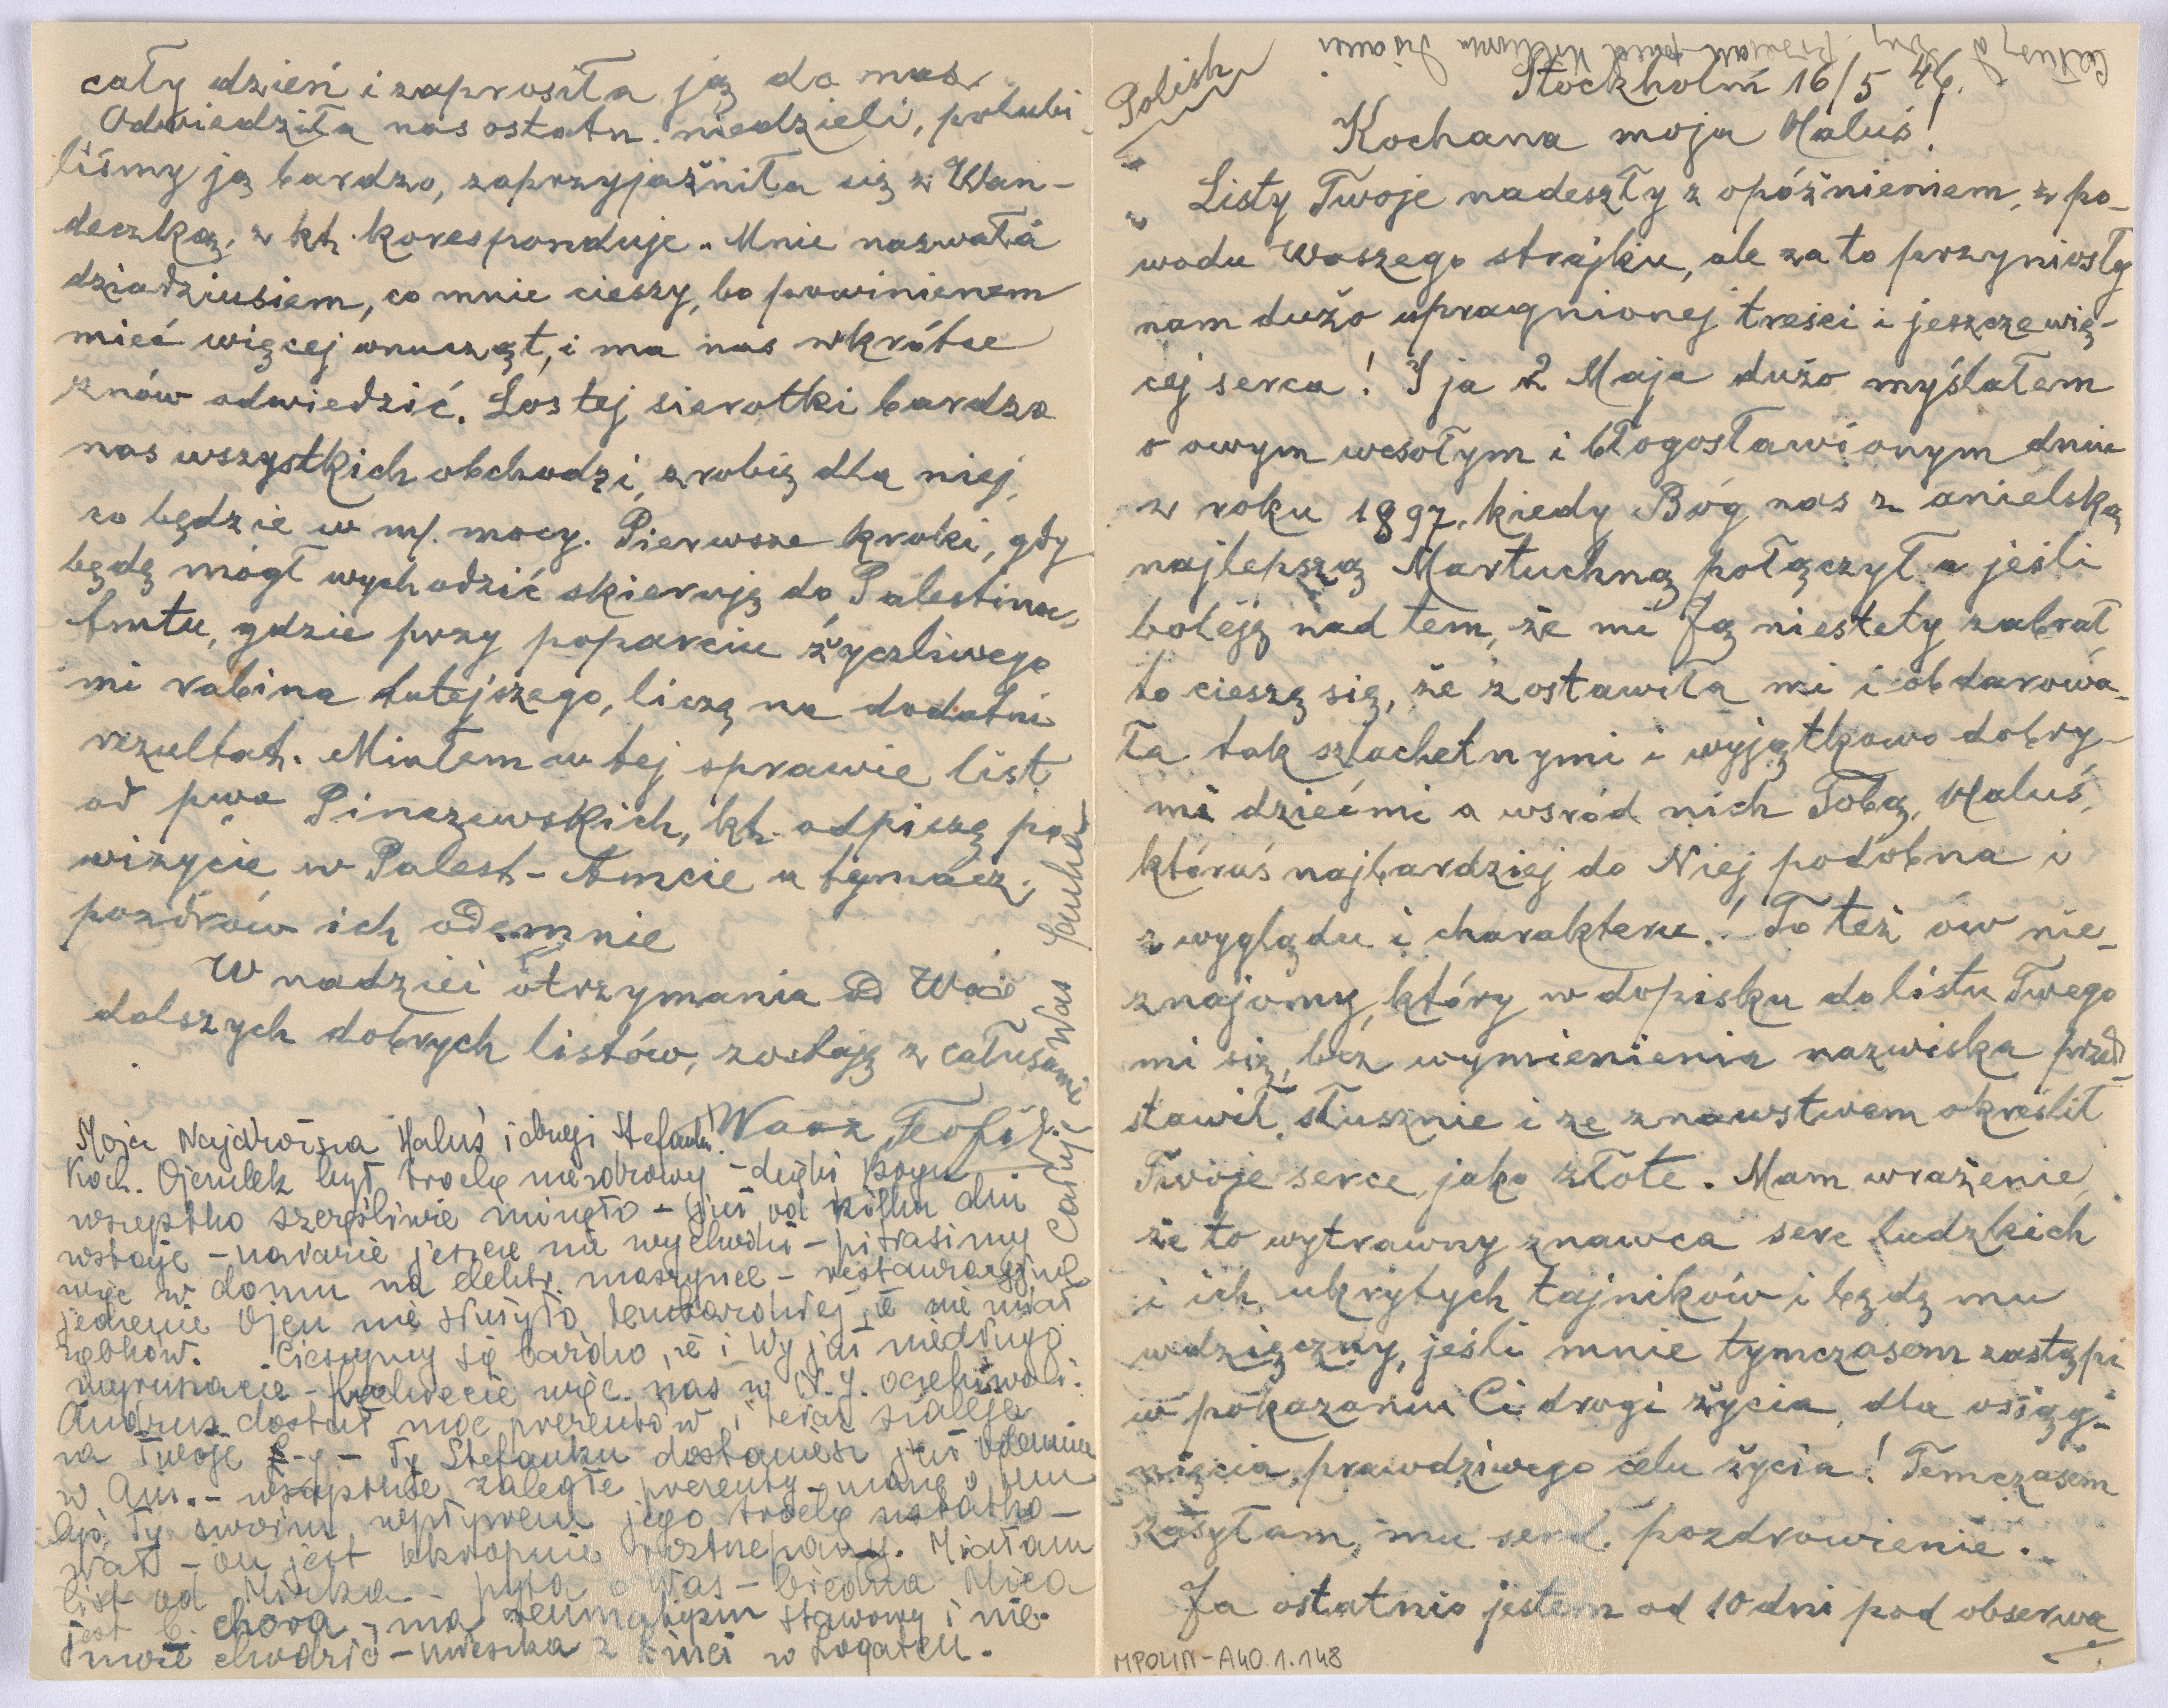 Polish
Stockholm 16/5 46.
Kochana moja Haluś!
Listy Twoje nadeszły z opóźnieniem, z po-
wodu Waszego strajku, ale za to przyniosły
nam dużo upragnionej treści i jeszcze wię-
cej serca! I ja 2 Maja dużo myślałem
o owym wesołym i błogosławionym dniu
z roku 1897, kiedy Bóg nas z anielską
najlepszą Martuchną połączył a jeśli
boleję nad tem, że mi Ją niestety zabrał,
to cieszę się, że zostawiła mi i obdarowa-
ła tak szlachetnymi i wyjątkowo dobry-
mi dziećmi a wsród nich Tobą, Haluś,
któraś najbardziej do Niej podobna i
z wyglądu i charakteru! To też ów nie-
znajomy, który w dopisku do listu Twego
mi się, bez wymienienia nazwiska przed-
stawił, słusznie i ze znawstwem określił
Twoje serce, jako złote. Mam wrażenie,
że to wytrawny znawca serc ludzkich
i ich ukrytych tajników i będę mu
wdzięczny, jeśli mnie tymczasem zastąpi
w pokazaniu Ci drogi życia, dla osiąg-
nięcia prawdziwego celu życia! Temczasem
zasyłam mu serd. pozdrowienie.
Ja ostatnio jestem od 10 dni pod obserwa
MPOLIN-A40.1.148
cały dzień i zaprosiła ją do nas.
Odwiedziła nas ostatn. niedzieli, polubi-
liśmy ją bardzo, zaprzyjaźniła się z Wan-
deczką, z kt. koresponduje. Mnie nazwała
dziadziusiem, co mnie cieszy, bo powinienem
mieć więcej wnucząt, i ma nas wkrótce
znów odwiedzić. Los tej sierotki bardzo
nas wszystkich obchodzi, zrobię dla niej,
co będzie w m/. mocy. Pierwsze kroki, gdy
będę mógł wychodzić skieruję do Palestina-
Amtu, gdzie przy poparciu życzliwego
mi rabina tutejszego, liczę na dodatni
rezultat. Miałem w tej sprawie list
od pwa Pinczewskich, kt. odpiszę po
wizycie w Palest-Amcie a tymacz.
pozdrów ich odemnie
W nadziei otrzymania od Was
dalszych dobrych listów, zostaję z całusami
Wasz Teofil.
Moja Najdroższa Haluś i drogi Stefanku!
Koch. Ojczulek był trochę niezdrowy - dzięki Bogu
wszystko szczęśliwie minęło - już od kilku dni
wstaje - narazie jeszcze nie wychodzi - pitrasimy
więc w domu na elektr. maszynce - restauracyjne
jedzenie Ojcu nie służyło tembardziej, że nie miał
ząbków. Cieszymy się bardzo, że i Wy już niedługo
wyruszacie - będziecie więc nas w N.Y. oczekiwali.
Andrzej dostał moc prezentów i teraz szaleje
na Twoje - Ty Stefanku dostaniesz już odemnie
w Am. - wszystkie zaległe prezenty
Ty swoim wpływem jego trochę
wał - on jest okropnie roztrzepany. Miałam
list od Mirka - pyta o Was - biedna Mica
jest b. chora - ma reumatyzm stawowy i nie
może chodzić - mieszka z Kinei w Łogaten.
Całuję Was